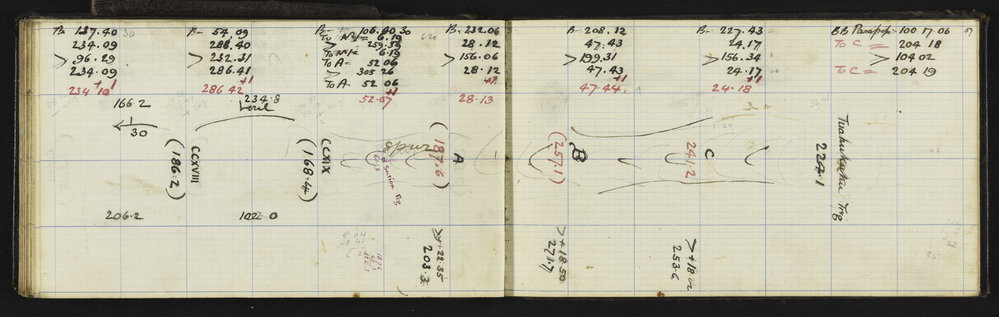 B- 137.40 30
234.09
> 96.29
234.09
+1
234 10
B- 54.09
288.40
> 232.31
286.41
+1
286 42
B- 106.40 30
To No1= 6.19
> 259.59
To No1= 6.19
To A= 52 06
> 305 26
To A- 52 06
+1
52.07
B- 232.06
28.12
> 156.06
28.12
+1
28.13
B- 208.12
47.43
> 199.31
47.43
+1
47.44
B- 227.43
24.17
> 156.34
24.17
+1
24.18
57
BB 100 17.06
To C = 204 18
> 104 02
To C = 204 19
166.2
1
30
234.8
level
CCXVIII
(186.2)
CCXIX
(168.4)
spur
A
(187.6)
B
(257.1)
C
241.2
Trig
224.1
206.2
1022.0
>+22 35
203.2
>+18.50
271.7
>+18 02
253.6